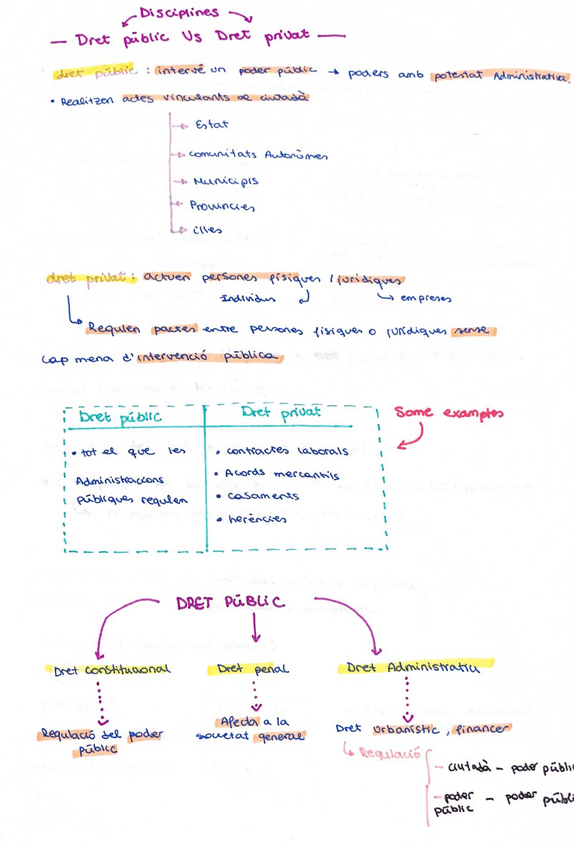 Disciplines
— Dret públic Vs Dret privat —
dret públic : intervé un poder públic → poders amb potestat Administrativa.
• Realitzen actes vinculants al ciutadà
→ Estat
→ comunitats Autonòmes
→ Municipis
→ Províncies
→ illes
dret privat : actuen persones físiques / jurídiques
Individus
→ empreses
Regulen pactes entre persones físiques o jurídiques sense
cap mena d'intervenció pública
Some examples
Dret públic
• tot el que les
Administracions
públiques regulen
Dret privat
• contractes laborals
• Acords mercantils
• casaments
• herències
DRET PÚBLIC
Dret constitucional
Regulació del poder
públic
Dret penal
Afecta a la
societat general
Dret Administratiu
Dret urbanístic, financer
Regulació
– ciutadà – poder públic
– poder públic – poder públic